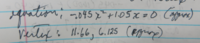 equation: -.045x² + 1.05x = 0 (approx)
Vertex: 11.66, 6.125 (approx)